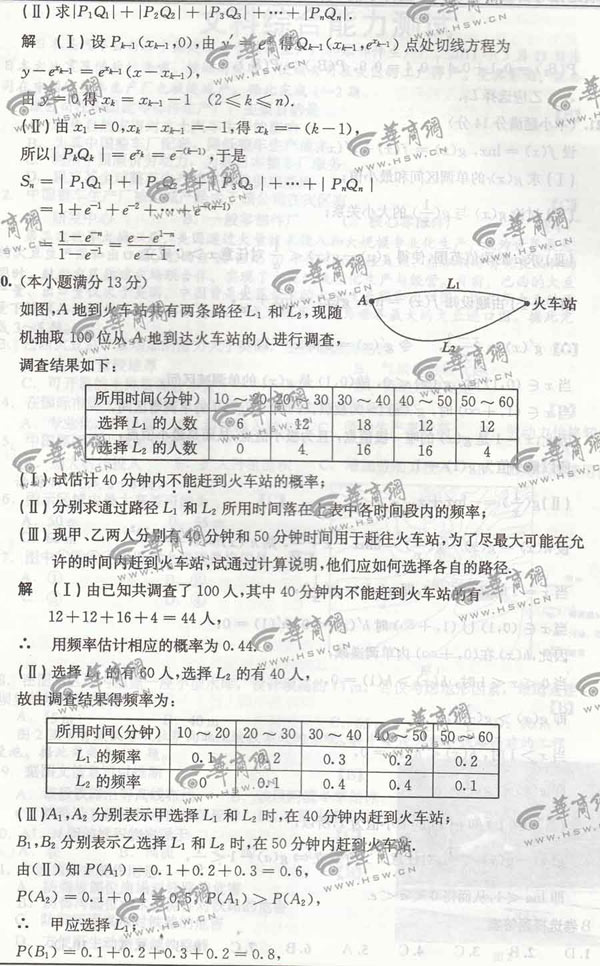 (Ⅱ)求|P₁Q₁|+|P₂Q₂|+|P₃Q₃|+⋯+|PₙQₙ|.
解 (Ⅰ)设 Pₖ₋₁(xₖ₋₁,0),由 y′=eˣ 得Qₖ₋₁(xₖ₋₁,e^{xₖ₋₁})点处切线方程为
y-e^{xₖ₋₁}=e^{xₖ₋₁}(x-xₖ₋₁),
由 y=0 得 xₖ=xₖ₋₁-1 (2≤k≤n).
(Ⅱ)由 x₁=0,xₖ-xₖ₋₁=-1,得 xₖ=-(k-1),
所以|PₖQₖ|=e^{xₖ}=e^{-(k-1)},于是
Sₙ=|P₁Q₁|+|P₂Q₂|+|P₃Q₃|+⋯+|PₙQₙ|
=1+e⁻¹+e⁻²+⋯+e^{-(n-1)}
=\frac{1-e^{-n}}{1-e^{-1}}=\frac{e-e^{1-n}}{e-1}.
0. (本小题满分 13 分)
如图,A 地到火车站共有两条路径 L₁ 和 L₂,现随
机抽取 100 位从 A 地到达火车站的人进行调查,
调查结果如下:
A L₁ 火车站
L₂
所用时间(分钟) 10~20 20~30 30~40 40~50 50~60
选择 L₁ 的人数 6 12 18 12 12
选择 L₂ 的人数 0 4 16 16 4
(Ⅰ)试估计 40 分钟内不能赶到火车站的概率;
(Ⅱ)分别求通过路径 L₁ 和 L₂ 所用时间落在上表中各时间段内的频率;
(Ⅲ)现甲、乙两人分别有 40 分钟和 50 分钟时间用于赶往火车站,为了尽最大可能在允
许的时间内赶到火车站,试通过计算说明,他们应如何选择各自的路径.
解 (Ⅰ)由已知共调查了 100 人,其中 40 分钟内不能赶到火车站的有
12+12+16+4=44 人,
∴ 用频率估计相应的概率为 0.44.
(Ⅱ)选择 L₁ 的有 60 人,选择 L₂ 的有 40 人,
故由调查结果得频率为:
所用时间(分钟) 10~20 20~30 30~40 40~50 50~60
L₁ 的频率 0.1 0.2 0.3 0.2 0.2
L₂ 的频率 0 0.1 0.4 0.4 0.1
(Ⅲ)A₁,A₂ 分别表示甲选择 L₁ 和 L₂ 时,在 40 分钟内赶到火车站;
B₁,B₂ 分别表示乙选择 L₁ 和 L₂ 时,在 50 分钟内赶到火车站.
由(Ⅱ)知 P(A₁)=0.1+0.2+0.3=0.6,
P(A₂)=0.1+0.4=0.5,P(A₁)>P(A₂),
∴ 甲应选择 L₁;
P(B₁)=0.1+0.2+0.3+0.2=0.8,
华商网
WWW.HSW.CN